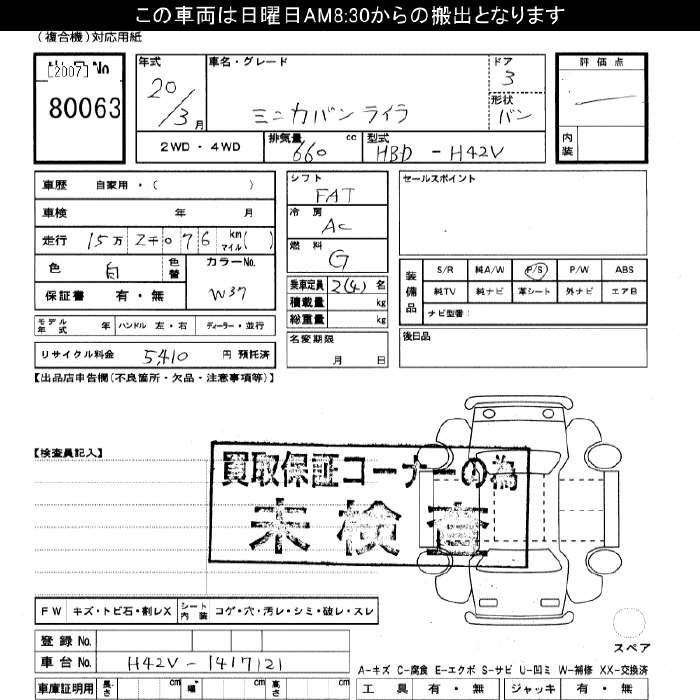 この車両は日曜日AM8:30からの搬出となります
(複合機)対応用紙
[2007] No
80063
年式 20/3 月
車名・グレード
ミニカバン ライラ
ドア 3
形状 バン
評価点
内装
2WD・4WD
排気量 660 cc
型式 HBD - H42V
車歴 自家用・( )
車検 年 月
走行 15万2千076 km マイル( )
色 白 色替
カラーNo. W37
保証書 有・無
モデル年式 年 ハンドル 左・右 ディーラー・並行
リサイクル料金 5,410 円 預託済
シフト FAT
冷房 AC
燃料 G
乗車定員 2(4) 名
積載量 kg
総重量 kg
名変期限 月 日
セールスポイント
装備品
S/R 純A/W P/S P/W ABS
純TV 純ナビ 革シート 外ナビ エアB
ナビ型番:
後日品
【出品店申告欄(不良箇所・欠品・注意事項等)】
【検査員記入】
買取保証コーナーの為
未検査
FW キズ・トビ石・割レX シート内装 コゲ・穴・汚レ・シミ・破レ・スレ
登録No.
車台No. H42V-1417121
車庫証明用 長さ cm 幅 cm 高さ cm
スペア
A-キズ C-腐食 E-エクボ S-サビ U-凹ミ W-補修 XX-交換済
工具 有・無 ジャッキ 有・無